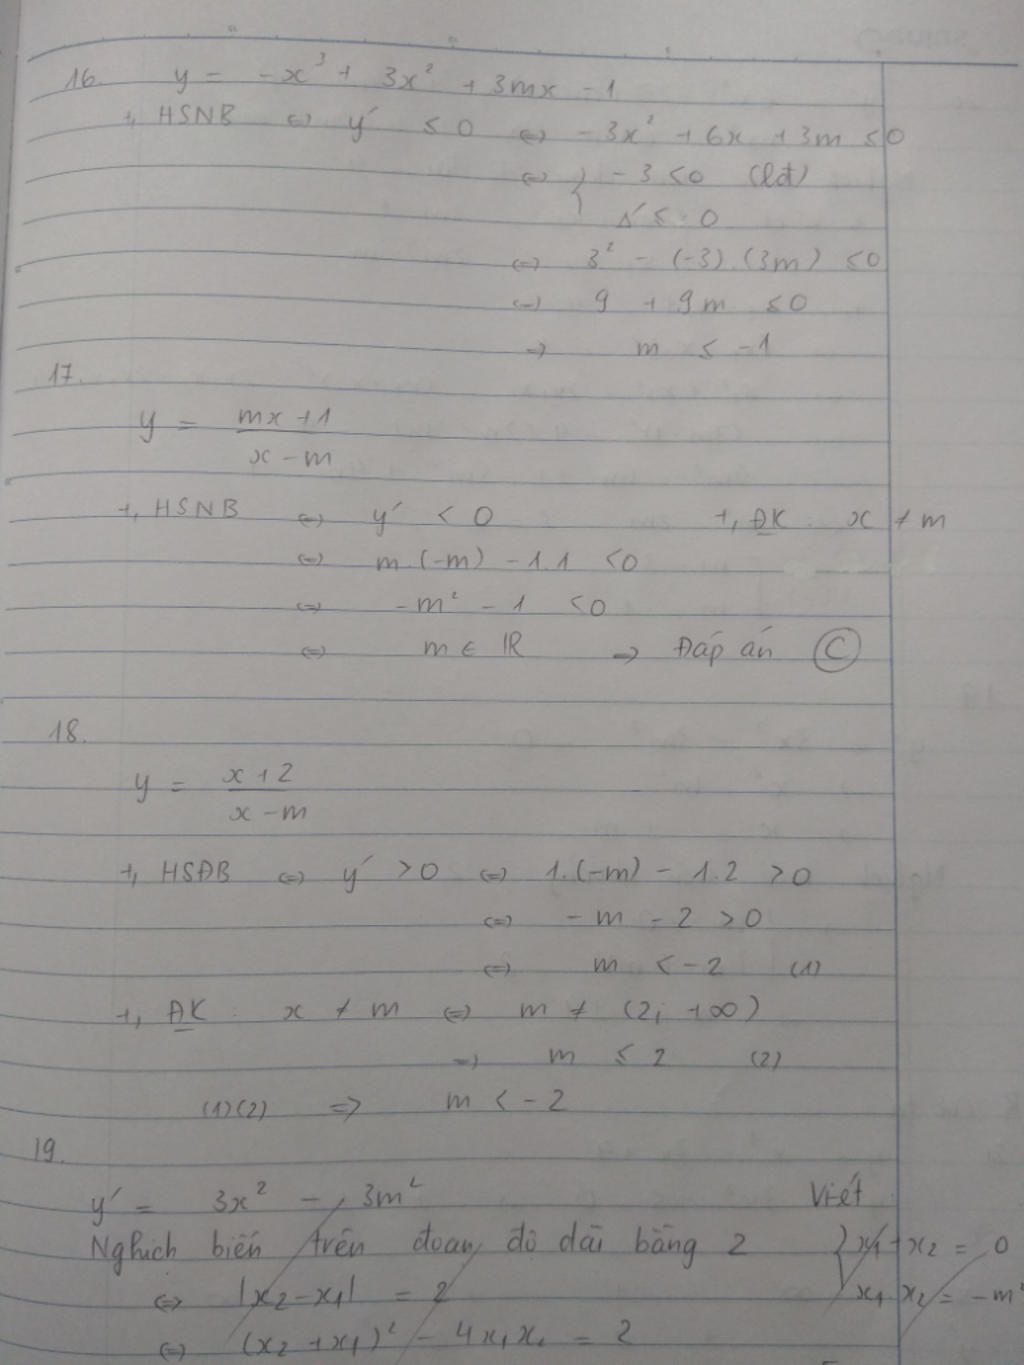 16. y = -x³ + 3x² + 3mx - 1
+, HSNB ⇔ y' ≤ 0 ⇔ -3x² + 6x + 3m ≤ 0
⇔ { -3 < 0 (lđ)
Δ' ≤ 0
⇔ 3² - (-3).(3m) ≤ 0
⇔ 9 + 9m ≤ 0
⇒ m ≤ -1
17.
y = (mx + 1)/(x - m)
+, HSNB ⇔ y' < 0 +, ĐK: x ≠ m
⇔ m.(-m) - 1.1 < 0
⇔ -m² - 1 < 0
⇔ m ∈ ℝ → Đáp án Ⓒ
18.
y = (x + 2)/(x - m)
+, HSĐB ⇔ y' > 0 ⇔ 1.(-m) - 1.2 > 0
⇔ -m - 2 > 0
⇔ m < -2 (1)
+, ĐK: x ≠ m ⇔ m ≠ (2; +∞)
⇒ m ≤ 2 (2)
(1)(2) ⇒ m < -2
19.
y' = 3x² - 3m² Viét
Nghịch biến trên đoạn độ dài bằng 2 { x₁ + x₂ = 0
⇔ |x₂ - x₁| = 2 x₁.x₂ = -m²
⇔ (x₂ + x₁)² - 4x₁x₂ = 2